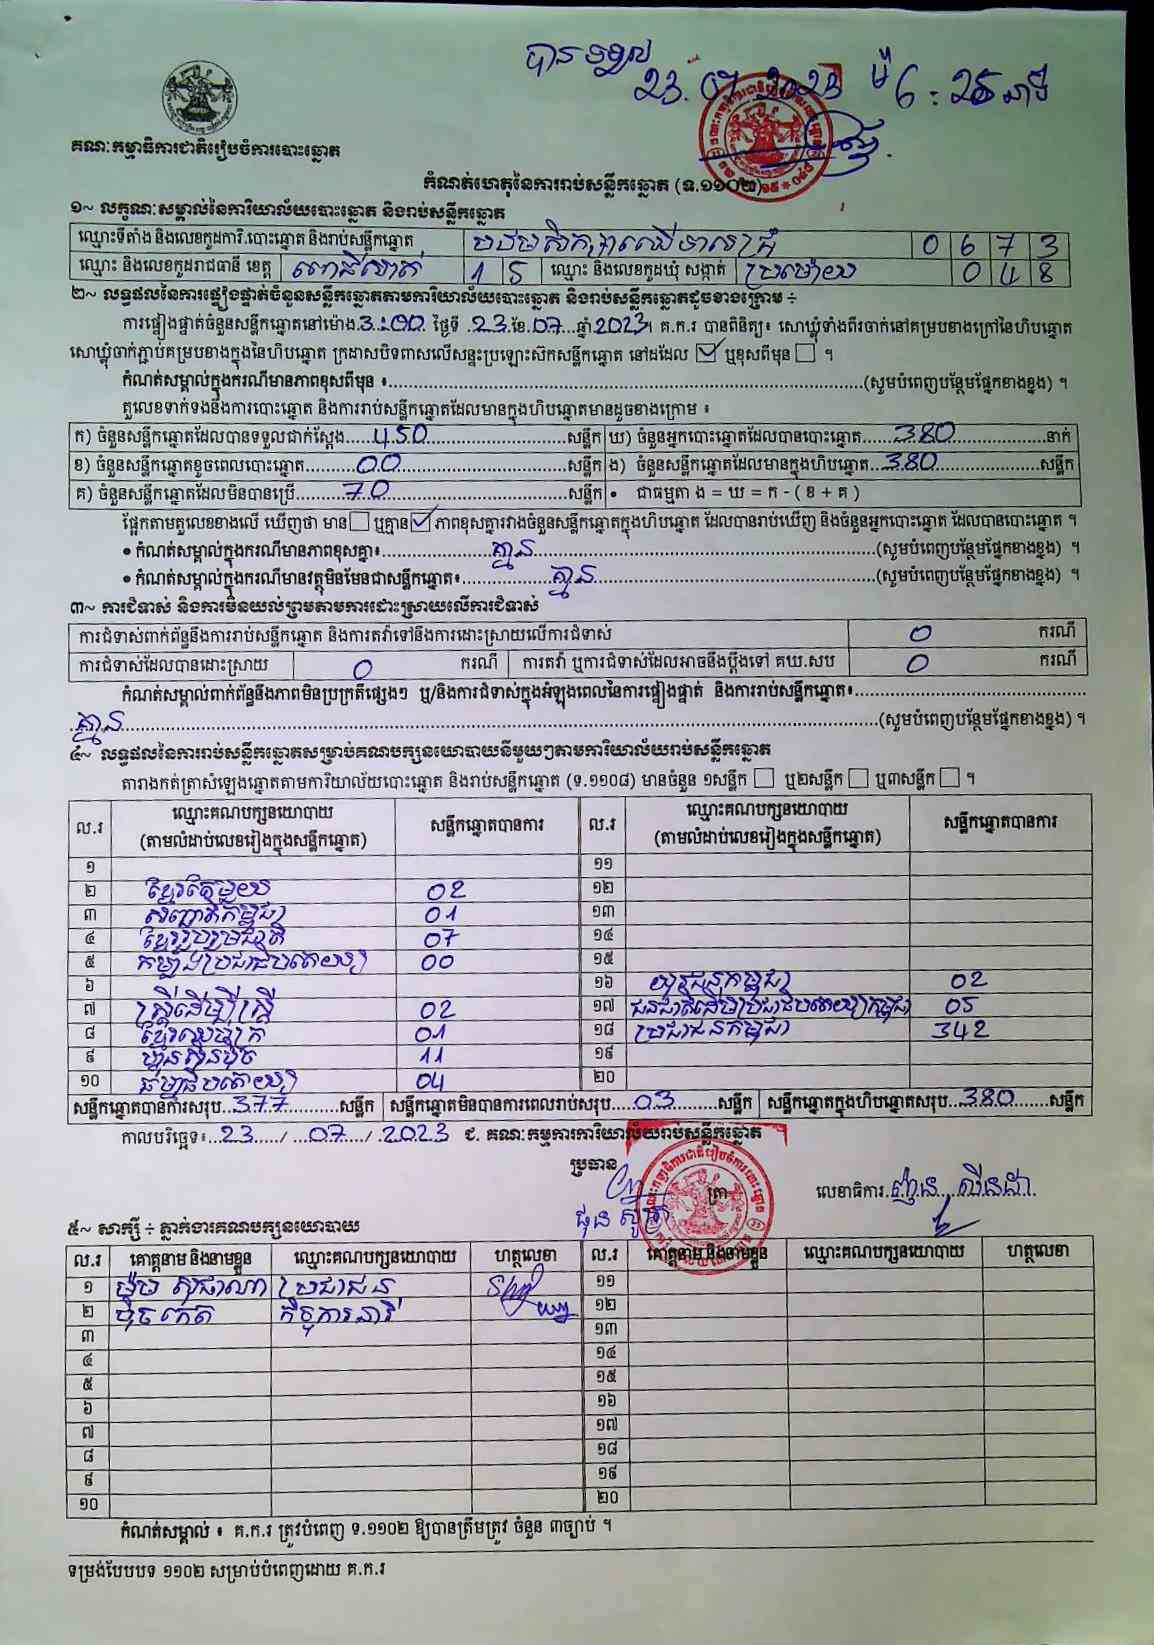 បានទទួល
23.07.2023 ម៉ 6:25 នាទី
គណៈកម្មាធិការជាតិរៀបចំការបោះឆ្នោត
កំណត់ហេតុនៃការរាប់សន្លឹកឆ្នោត (ទ.១១០២)
១~ លក្ខណៈសម្គាល់នៃការិយាល័យបោះឆ្នោត និងរាប់សន្លឹកឆ្នោត
ឈ្មោះទីតាំង និងលេខកូដការិ.បោះឆ្នោត និងរាប់សន្លឹកឆ្នោត 0 6 7 3
ឈ្មោះ និងលេខកូដរាជធានី ខេត្ត ពោធិ៍សាត់ 1 5 ឈ្មោះ និងលេខកូដឃុំ សង្កាត់ ប្រម៉ោយ 0 4 8
២~ លទ្ធផលនៃការផ្ទៀងផ្ទាត់ចំនួនសន្លឹកឆ្នោតតាមការិយាល័យបោះឆ្នោត និងរាប់សន្លឹកឆ្នោតដូចខាងក្រោម ÷
ការផ្ទៀងផ្ទាត់ចំនួនសន្លឹកឆ្នោតនៅម៉ោង 3:00 ថ្ងៃទី 23 ខែ 07 ឆ្នាំ 2023។ គ.ក.រ បានពិនិត្យ៖ សោឃ្លុំទាំងពីរចាក់នៅគម្របខាងក្រៅនៃហិបឆ្នោត
សោឃ្លុំចាក់ភ្ជាប់គម្របខាងក្នុងនៃហិបឆ្នោត ក្រដាសបិទពាសលើសន្ទះប្រឡោះស៊កសន្លឹកឆ្នោត នៅដដែល ☑ ឬខុសពីមុន ☐ ។
កំណត់សម្គាល់ក្នុងករណីមានភាពខុសពីមុន ៖ (សូមបំពេញបន្ថែមផ្នែកខាងខ្នង) ។
តួលេខទាក់ទងនឹងការបោះឆ្នោត និងការរាប់សន្លឹកឆ្នោតដែលមានក្នុងហិបឆ្នោតមានដូចខាងក្រោម ៖
ក) ចំនួនសន្លឹកឆ្នោតដែលបានទទួលជាក់ស្តែង 450 សន្លឹក ឃ) ចំនួនអ្នកបោះឆ្នោតដែលបានបោះឆ្នោត 380 នាក់
ខ) ចំនួនសន្លឹកឆ្នោតខូចពេលបោះឆ្នោត 00 សន្លឹក ង) ចំនួនសន្លឹកឆ្នោតដែលមានក្នុងហិបឆ្នោត 380 សន្លឹក
គ) ចំនួនសន្លឹកឆ្នោតដែលមិនបានប្រើ 70 សន្លឹក • ជាធម្មតា ង = ឃ = ក - ( ខ + គ )
ផ្អែកតាមតួលេខខាងលើ ឃើញថា មាន ☐ ឬគ្មាន ☑ ភាពខុសគ្នារវាងចំនួនសន្លឹកឆ្នោតក្នុងហិបឆ្នោត ដែលបានរាប់ឃើញ និងចំនួនអ្នកបោះឆ្នោត ដែលបានបោះឆ្នោត ។
• កំណត់សម្គាល់ក្នុងករណីមានភាពខុសគ្នា៖ គ្មាន (សូមបំពេញបន្ថែមផ្នែកខាងខ្នង) ។
• កំណត់សម្គាល់ក្នុងករណីមានវត្ថុមិនមែនជាសន្លឹកឆ្នោត៖ គ្មាន (សូមបំពេញបន្ថែមផ្នែកខាងខ្នង) ។
៣~ ការជំទាស់ និងការមិនយល់ព្រមតាមការដោះស្រាយលើការជំទាស់
ការជំទាស់ពាក់ព័ន្ធនឹងការរាប់សន្លឹកឆ្នោត និងការតវ៉ាទៅនឹងការដោះស្រាយលើការជំទាស់ 0 ករណី
ការជំទាស់ដែលបានដោះស្រាយ 0 ករណី ការតវ៉ា ឬការជំទាស់ដែលអាចនឹងប្តឹងទៅ គឃ.សប 0 ករណី
កំណត់សម្គាល់ពាក់ព័ន្ធនឹងភាពមិនប្រក្រតីផ្សេងៗ ឬ/និងការជំទាស់ក្នុងអំឡុងពេលនៃការផ្ទៀងផ្ទាត់ និងការរាប់សន្លឹកឆ្នោត៖
គ្មាន (សូមបំពេញបន្ថែមផ្នែកខាងខ្នង) ។
៤~ លទ្ធផលនៃការរាប់សន្លឹកឆ្នោតសម្រាប់គណបក្សនយោបាយនីមួយៗតាមការិយាល័យរាប់សន្លឹកឆ្នោត
តារាងកត់ត្រាសំឡេងឆ្នោតតាមការិយាល័យបោះឆ្នោត និងរាប់សន្លឹកឆ្នោត (ទ.១១០៨) មានចំនួន ១សន្លឹក ☐ ឬ២សន្លឹក ☐ ឬ៣សន្លឹក ☐ ។
ល.រ ឈ្មោះគណបក្សនយោបាយ (តាមលំដាប់លេខរៀងក្នុងសន្លឹកឆ្នោត) សន្លឹកឆ្នោតបានការ ល.រ ឈ្មោះគណបក្សនយោបាយ (តាមលំដាប់លេខរៀងក្នុងសន្លឹកឆ្នោត) សន្លឹកឆ្នោតបានការ
១ ១១
២ ខ្មែរតែមួយ 02 ១២
៣ សញ្ជាតិកម្ពុជា 01 ១៣
៤ ខ្មែររួបរួមជាតិ 07 ១៤
៥ កម្លាំងប្រជាធិបតេយ្យ 00 ១៥
៦ ១៦ យុវជនកម្ពុជា 02
៧ ស្ត្រីដើម្បីស្ត្រី 02 ១៧ ជនជាតិដើមប្រជាធិបតេយ្យកម្ពុជា 05
៨ 01 ១៨ ប្រជាជនកម្ពុជា 342
៩ ហ៊្វុនស៊ិនប៉ិច 11 ១៩
១០ ធម្មាធិបតេយ្យ 04 ២០
សន្លឹកឆ្នោតបានការសរុប 377 សន្លឹក សន្លឹកឆ្នោតមិនបានការពេលរាប់សរុប 03 សន្លឹក សន្លឹកឆ្នោតក្នុងហិបឆ្នោតសរុប 380 សន្លឹក
កាលបរិច្ឆេទ៖ 23 / 07 / 2023 ជ. គណៈកម្មការការិយាល័យរាប់សន្លឹកឆ្នោត
ប្រធាន
ត្រា លេខាធិការ
៥~ សាក្សី ÷ ភ្នាក់ងារគណបក្សនយោបាយ
ល.រ គោត្តនាម និងនាមខ្លួន ឈ្មោះគណបក្សនយោបាយ ហត្ថលេខា ល.រ គោត្តនាម និងនាមខ្លួន ឈ្មោះគណបក្សនយោបាយ ហត្ថលេខា
១ ប្រជាជន ១១
២ ១២
៣ ១៣
៤ ១៤
៥ ១៥
៦ ១៦
៧ ១៧
៨ ១៨
៩ ១៩
១០ ២០
កំណត់សម្គាល់ ៖ គ.ក.រ ត្រូវបំពេញ ទ.១១០២ ឱ្យបានត្រឹមត្រូវ ចំនួន ៣ច្បាប់ ។
ទម្រង់បែបបទ ១១០២ សម្រាប់បំពេញដោយ គ.ក.រ